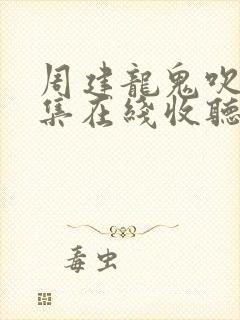 周建龍鬼吹
集在綫收聽
毒虫